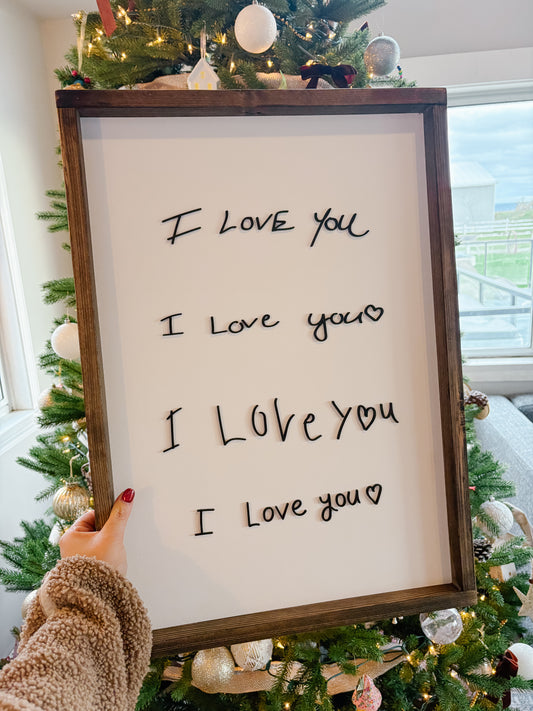 I LOVE you
I Love you♡
I Love y♡u
I Love you♡